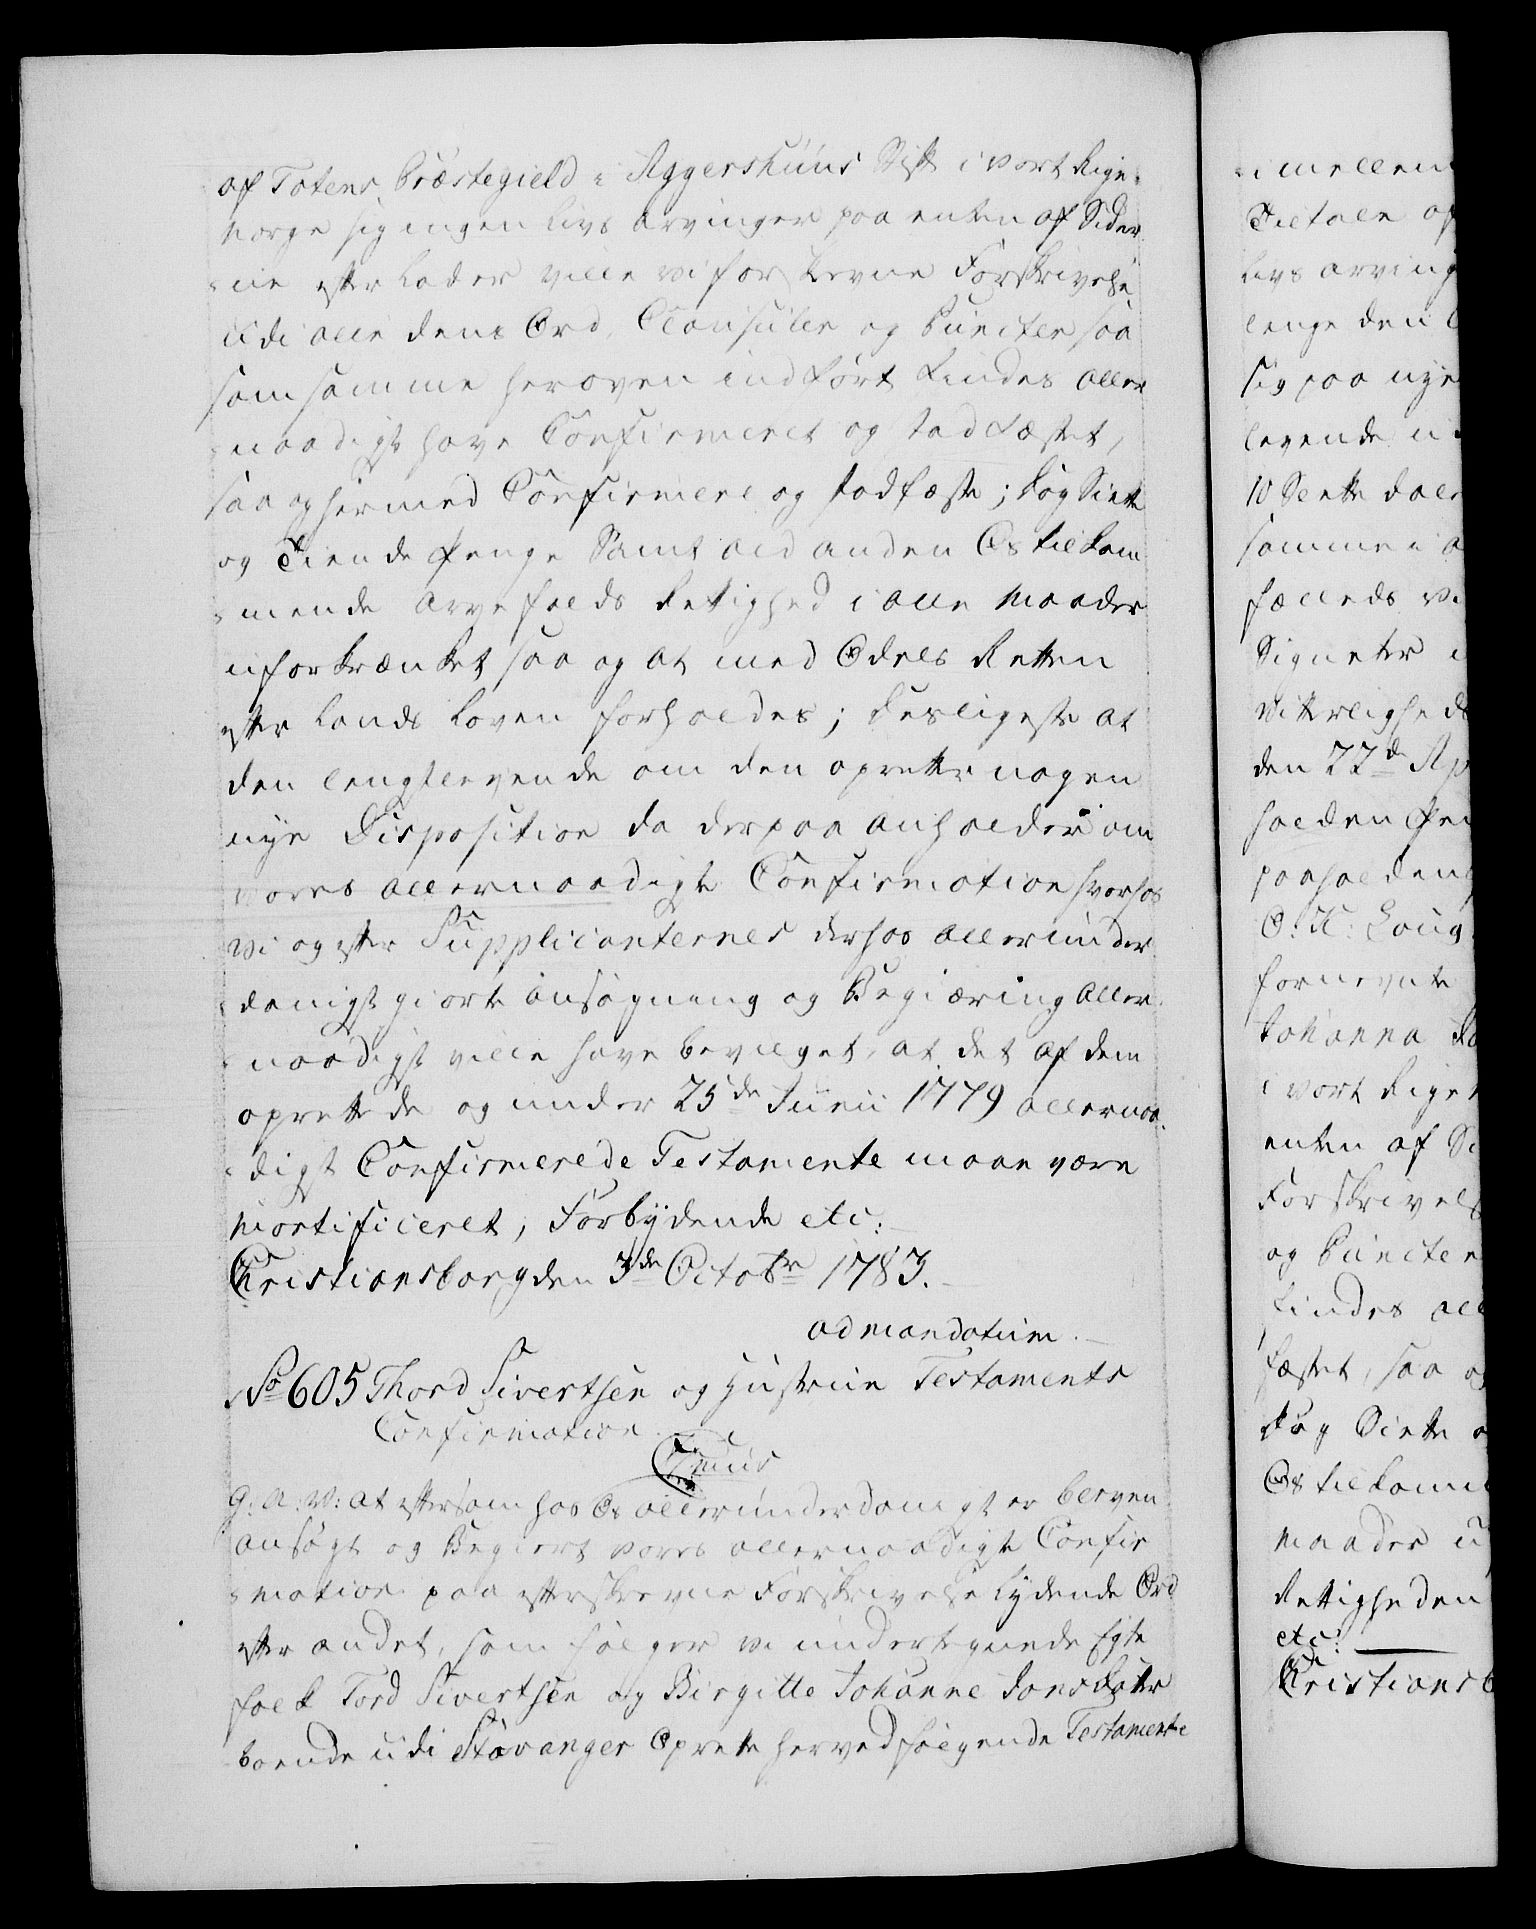 af Totens Præstegield i Aggershuus Stift i vort Rige
Norge sig ingen Livs Arvinger paa enten af Sider
-ne efterlader ville vi forskrevne Forskrivelse
udi alle dens Ord, Clausuler og Puncter saa
som samme heroven indført findes aller
-naadigst have Confirmeret og stadfæstet,
saa og hermed Confirmere og stadfæste; dog Siette
og Tiende Penge Samt ald anden Os tilkom
-mende Arvefalds Rettighed i alle Maader
uforkrænket saa og at med Odels Retten
efter Lands Loven forholdes; desligeste at
den lengstlevende om den oprette nogen
nye Disposition da derpaa anholder om
vores allernaadigste Confirmation hvorhos
vi og efter Supplicanternes derhos allerunder
-danigst giorte Ansøgning og Begiæring Aller-
-naadigst ville have bevilget, at det af dem
oprettede og under 25de Junii 1779 allernaa-
-digst Confirmerede Testamente maae være
Mortificeret, Forbydende etc:
Christiansborg den 3de Octobr 1783.
ad mandatum.
No 605 Thord Sivertsen og Hustrue Testaments
Confirmation
Gratis
G: A: V: at eftersom hos Os allerunderdanigst er bleven
ansøgt og Begiert vores allernaadigste Confir
-mation paa efterskrevne Forskrivelse lydende Ord
efter andet, som følger vi undertegnede Egte
folk Tord Sivertsen og Birgitte Johanne Jonsdatter
boende udi Stavanger Oprette herved følgende Testamente
-imellem
Tieltale af
Livs arving
lenge den
sig paa nye
levende u
10 Slette daler
samme i
fælleds
Signeter
Vitterligheds
den 22de Ap
holden
paaholden
forn evnte
Johanna
i vort Rige
enten af Si
Forskrivels
og Puncter
findes all
fæstet, saa og
dog Siette
Os tilkom
Maader u
Rettigheden
etc:
Christiansb